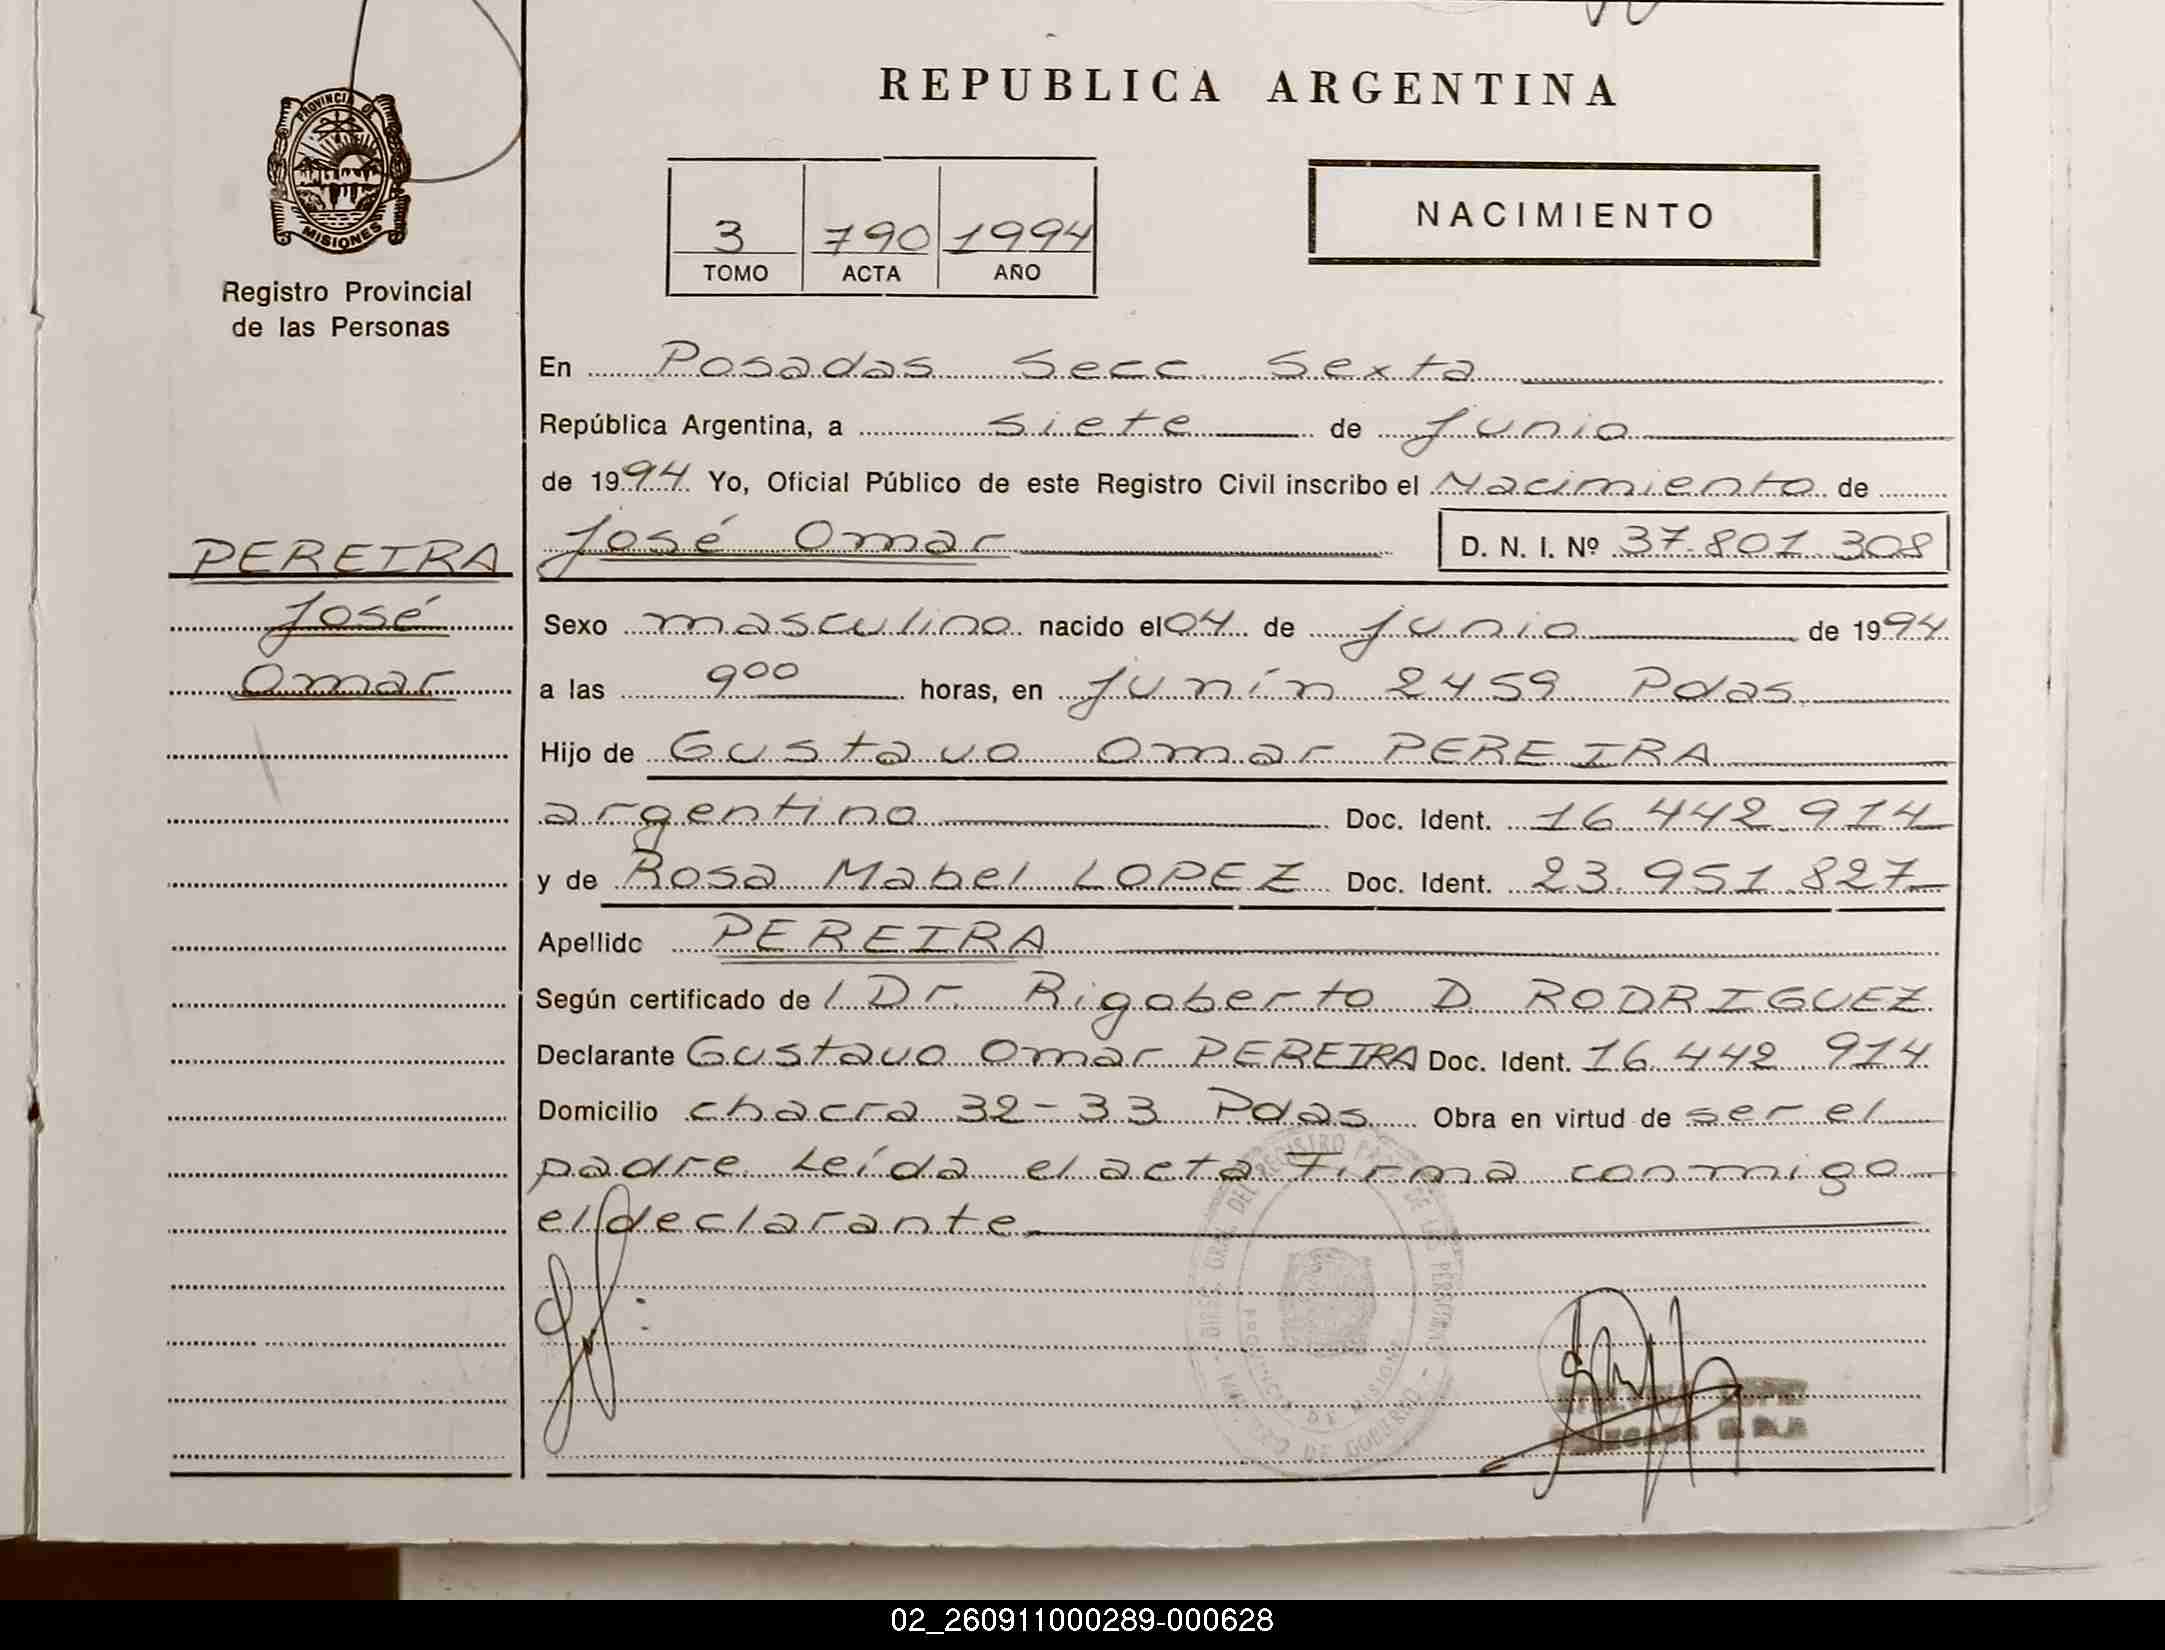 REPUBLICA ARGENTINA
PROVINCIA DE
MISIONES
Registro Provincial
de las Personas
3 790 1994
TOMO ACTA AÑO
NACIMIENTO
En Posadas Secc Sexta
República Argentina, a siete de junio
de 1994 Yo, Oficial Público de este Registro Civil inscribo el Nacimiento de
PEREIRA
José
Omar
José Omar D. N. I. Nº 37.801.308
Sexo masculino nacido el 04 de junio de 1994
a las 9⁰⁰ horas, en Junín 2459 Pdas
Hijo de Gustavo Omar PEREIRA
argentino Doc. Ident. 16.442.914
y de Rosa Mabel LOPEZ Doc. Ident. 23.951.827
Apellido PEREIRA
Según certificado de l Dr. Rigoberto D. RODRIGUEZ
Declarante Gustavo Omar PEREIRA Doc. Ident. 16.442.914
Domicilio chacra 32-33 Pdas Obra en virtud de ser el
padre. Leída el acta Firma conmigo
el declarante
PROVINCIA DE MISIONES
02_260911000289-000628